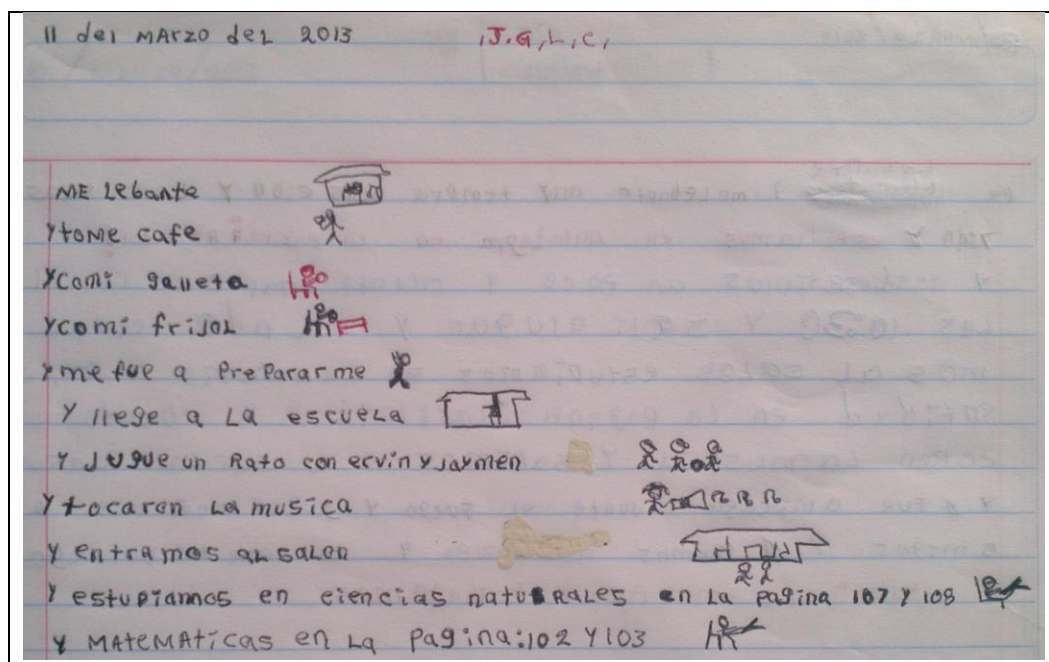 11 del MArzo del 2013 ,J.G,L,C,
ME Lebante
Y tome cafe
Y comi galleta
Y comi frijol
Y me fue a PrePararme
Y llege a La escuela
Y Jugue un Rato con ervin y Jaymen
Y tocaron La musica
Y entramos al salon
Y estudiamos en ciencias natuRALES en La pagina 107 Y 108
Y MAteMAticas en La pagina:102 Y 103